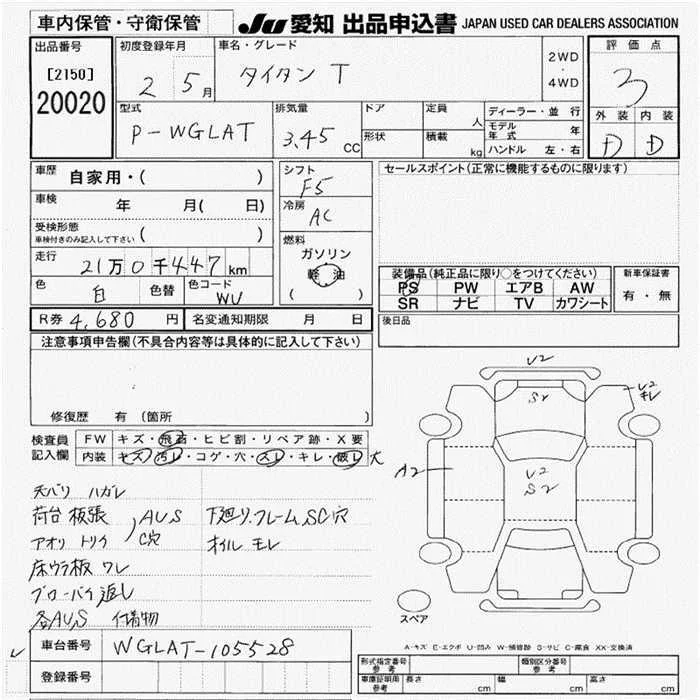 車内保管・守衛保管 JU 愛知 出品申込書 JAPAN USED CAR DEALERS ASSOCIATION
出品番号 初度登録年月 車名・グレード 2WD・4WD 評価点
[2150] 2 5月 タイタン T 3
20020 型式 排気量 ドア 定員 人 ディーラー・並行 外装 内装
P-WGLAT 3.45 CC 形状 積載 kg モデル年式 年 D D
ハンドル 左・右
車歴 自家用・( ) シフト F5 セールスポイント(正常に機能するものに限ります)
車検 年 月( 日) 冷房 AC
受検形態 ( )
車検付きのみ記入して下さい
燃料 ガソリン 軽油 ( )
走行 21万0千447km
装備品(純正品に限り○をつけてください) 新車保証書
色 白 色替 色コード WU
PS PW エアB AW 有・無
SR ナビ TV カワシート
R券 4,680 円 名変通知期限 月 日 後日品
注意事項申告欄(不具合内容等は具体的に記入して下さい)
修復歴 有(箇所 )
U2
S2
U2
キレ
A2
U2
S2
検査員記入欄 FW キズ・飛石・ヒビ割・リペア跡・X要
内装 キズ・汚レ・コゲ・穴・スレ・キレ・破レ 大
天バリ ハガレ
荷台 板張 AUS 下廻り.フレームSC穴
アオリ トリイ C穴 オイル モレ
床ウラ板 ワレ
各AUS 付着物
スペア
A-キズ E-エクボ U-凹み W-補修跡 S-サビ C-腐食 XX-交換済
車台番号 WGLAT-105528
登録番号
形式指定番号 参考 類別区分番号 参考
車庫証明用 参考 長さ cm 幅 cm 高さ cm